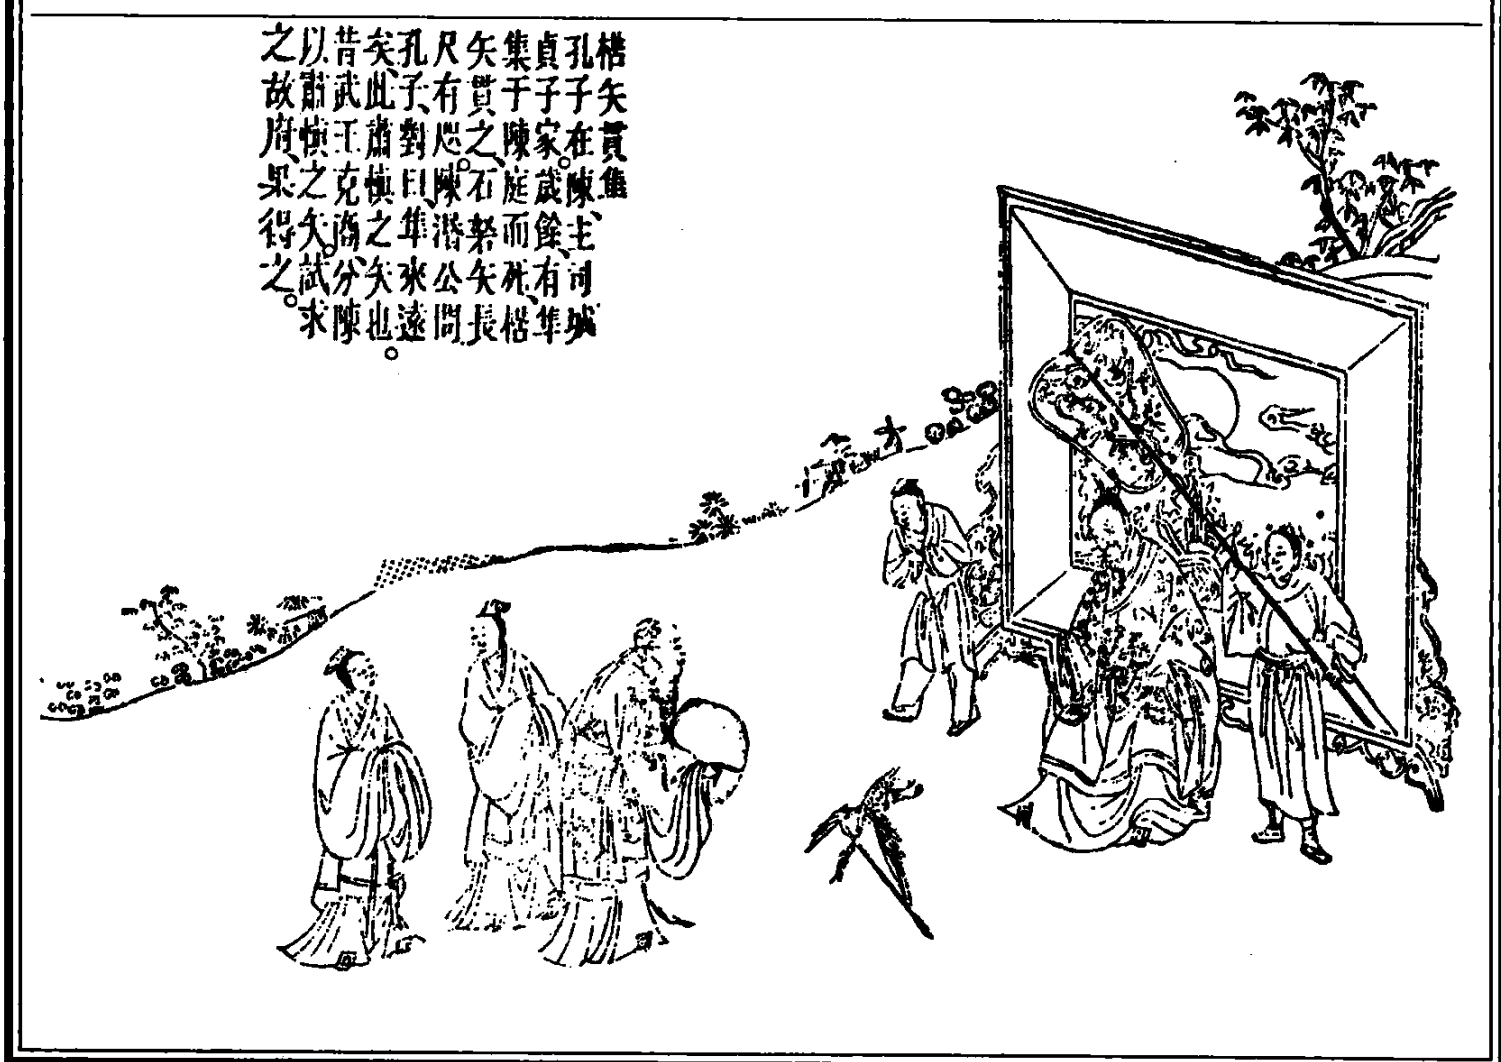 楛矢貫隼
孔子在陳、主司城
貞子家。歲餘、有隼
集于陳庭而死、楛
矢貫之、石砮矢長
尺有咫。陳湣公問
孔子、對曰、隼來遠
矣、此肅慎之矢也。
昔武王克商、分陳
以肅慎之矢。試求
之故府、果得之。